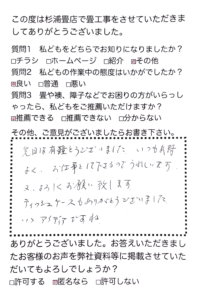 この度は杉浦畳店で畳工事をさせていただきま
してありがとうございました。
質問1 私どもをどちらでお知りになりましたか？
□チラシ □ホームページ □紹介 ☒その他
質問2 私どもの作業中の態度はいかがでしたか？
☒良い □普通 □悪い
質問3 畳や襖、障子などでお困りの方がいらっし
ゃったら、私どもをご推薦いただけますか？
☒推薦できる □推薦できない □分からない
その他、ご意見がございましたらお書き下さい。
先日は有難とうございました いつも
よく、お仕事して下さるのでうれしいです
又、よろしくお願い致します
ティッシュケースもありがとうございました
いいアイデアですね
ありがとうございました。お答えいただきまし
たお客様のお声を弊社資料等に掲載させていた
だいてもよろしでしょうか？
□許可する ☒匿名なら □許可しない